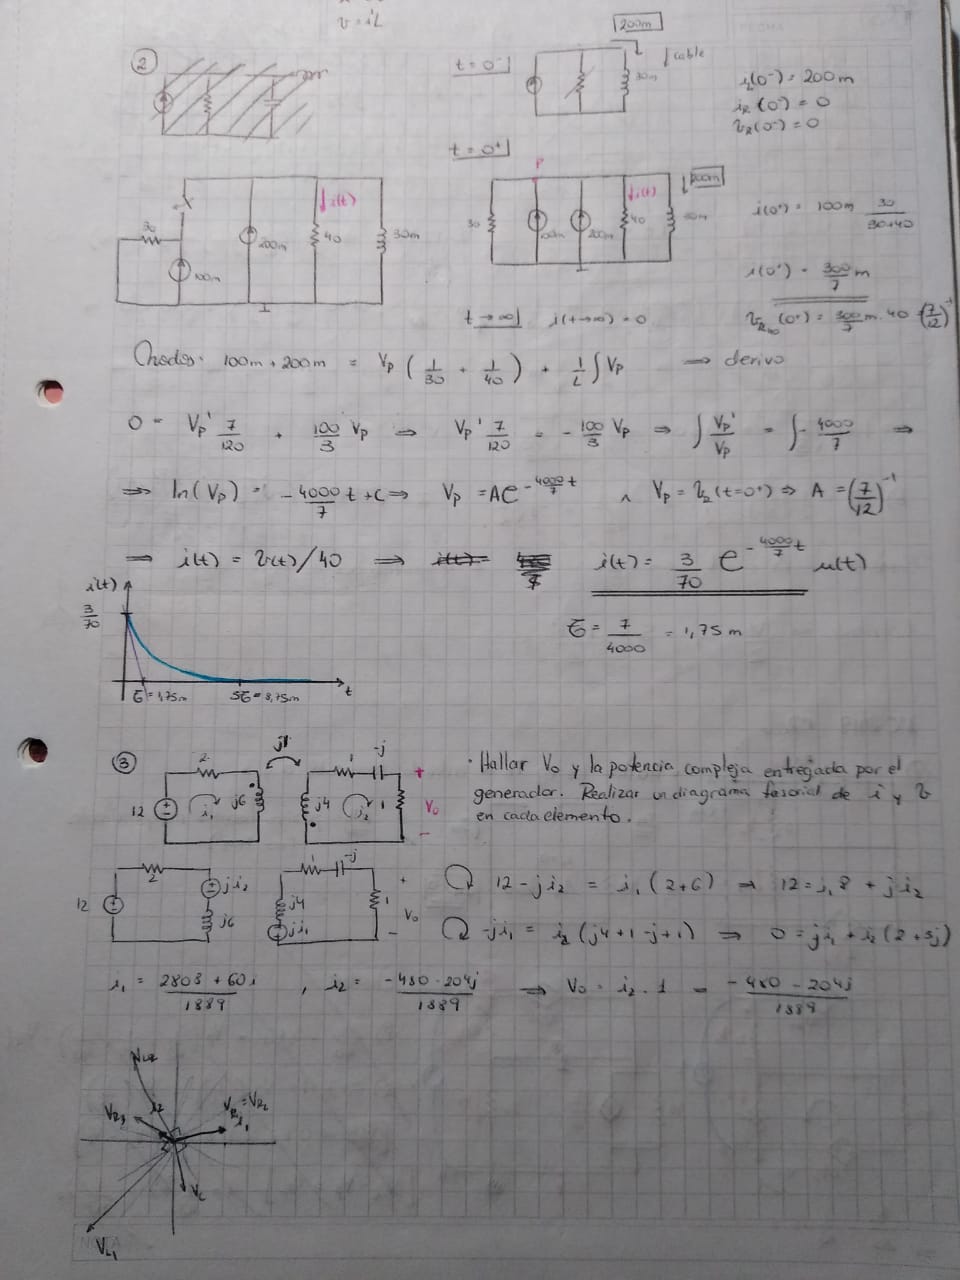 v = iL
②
t = 0⁻
200m
↓ cable
30m
i_L(0⁻) = 200m
i_R(0⁻) = 0
v_R(0⁻) = 0
t = 0⁺
30
100m
200m
i(t)
40
30m
P
30
100m
200m
i(t)
40
i(0⁺) = 100m 30/(30+40)
i(0⁺) = 300/7 m
(0⁺) = 300/7 m . 40 (7/12)⁻¹
t → ∞   i(t→∞) = 0
100m + 200m = Vp (1/30 + 1/40) + 1/L ∫ Vp → derivo
0 = Vp' 7/120 + 100/3 Vp ⇒ Vp' 7/120 = - 100/3 Vp ⇒ ∫ Vp'/Vp = ∫ - 4000/7 ⇒
⇒ ln(Vp) = - 4000/7 t + C ⇒ Vp = A e^(- 4000/7 t) ∧ Vp = (t=0⁺) ⇒ A = (7/12)⁻¹
⇒ i(t) = v(t)/40 ⇒ i(t) = 3/70 e^(- 4000/7 t) u(t)
i(t)
3/70
τ = 7/4000 = 1,75 m
τ = 1,75m   5τ = 8,75m   t
③
2
j1
1
-j
12
i₁
j6
j4
i₂
1
+
V₀
−
· Hallar V₀ y la potencia compleja entregada por el
generador. Realizar un diagrama fasorial de i y v
en cada elemento.
2
12
j i₂
j6
1
-j
j4
j i₁
1
+
V₀
−
12 - j i₂ = i₁ (2+6) ⇒ 12 = i₁ 8 + j i₂
-j i₁ = i₂ (j4 + 1 - j + 1) ⇒ 0 = j i₁ + i₂ (2+3j)
i₁ = (2808 + 60i)/1889 , i₂ = (-480 - 204j)/1889 ⇒ V₀ = i₂ . 1 = (-480 - 204j)/1889
V_L2
V_R3
i₂
V_R1 = V_R2
i₁
V_C
V_L1